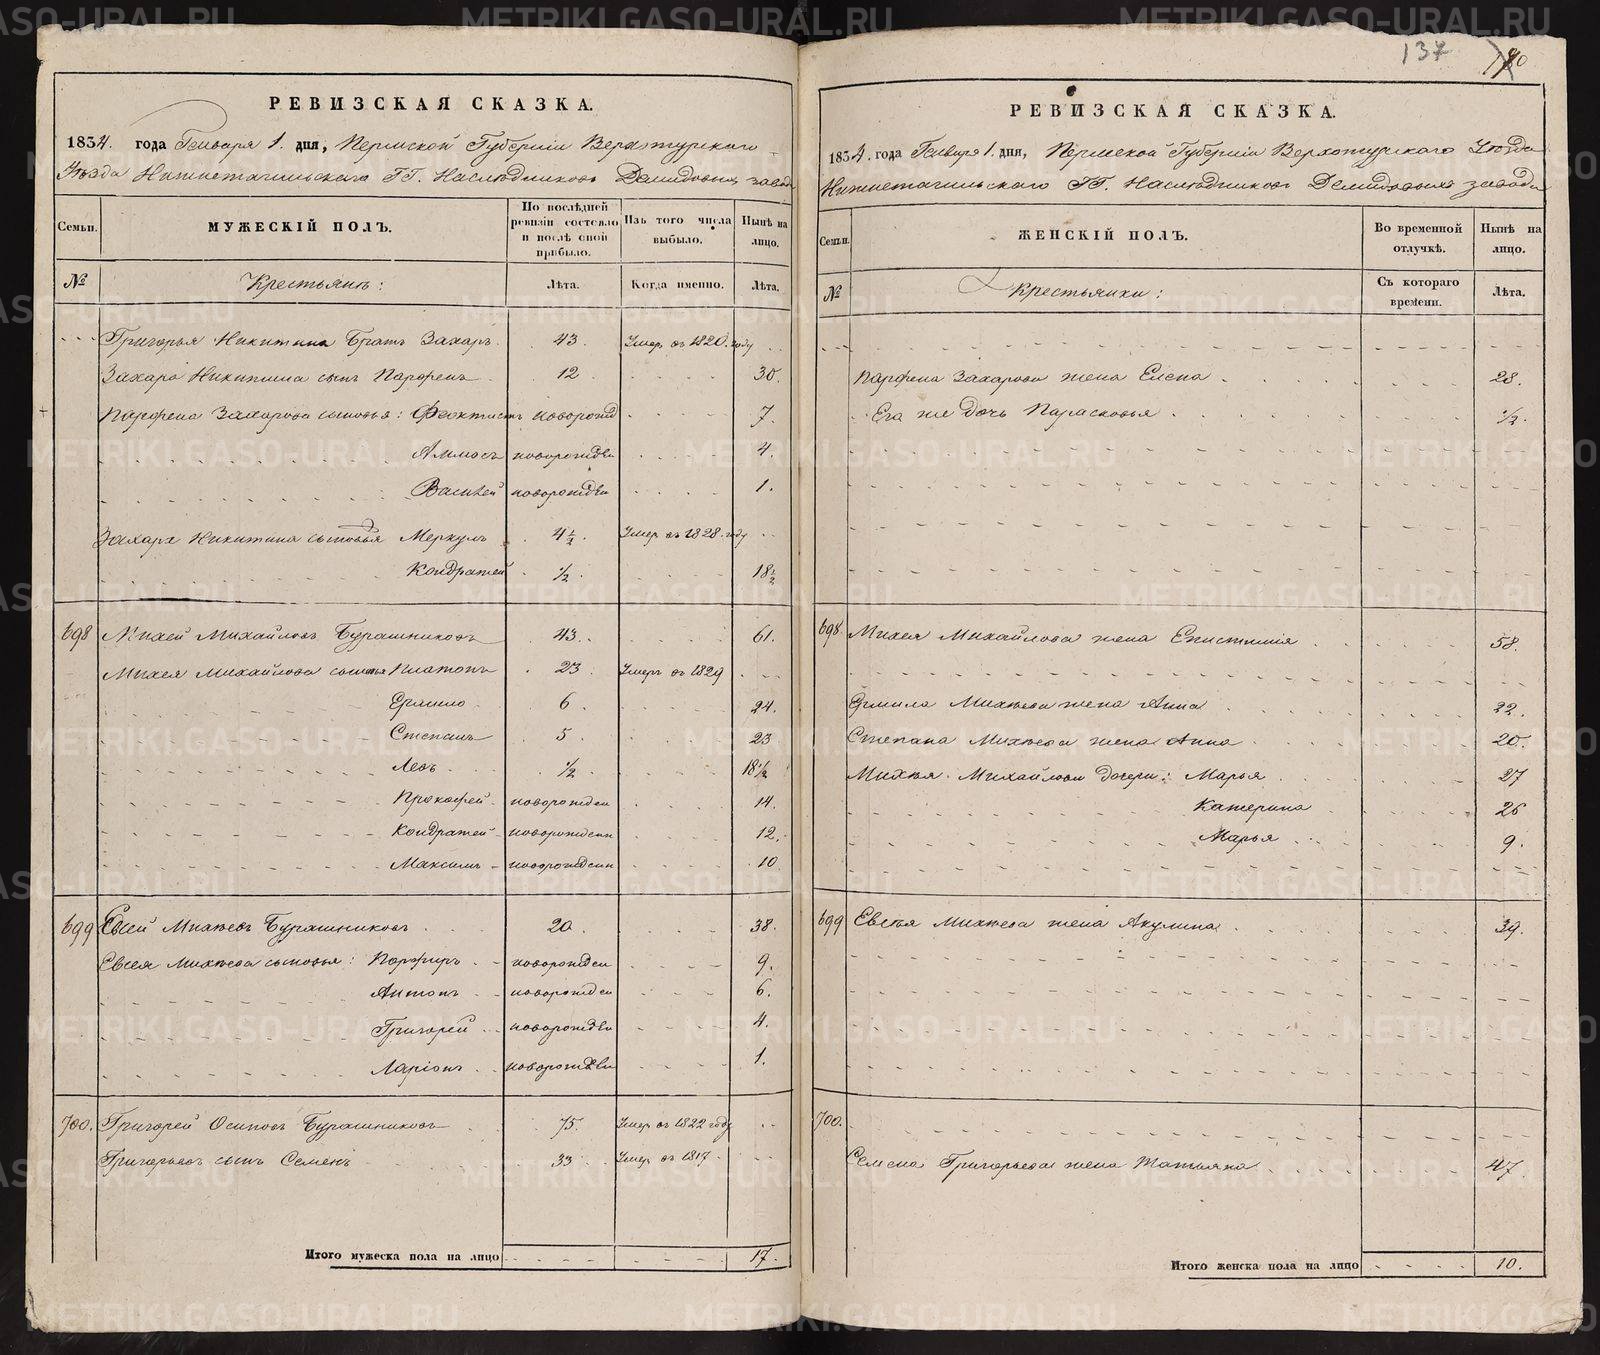 137
РЕВИЗСКАЯ СКАЗКА.
1834. года Генваря 1. дня, Пермской Губернiи Верхотурскаго
Уѣзда Нижнетагильскаго ГГ. Наслѣдниковъ Демидовыхъ завода
Семьи.
МУЖЕСКIЙ ПОЛЪ.
По послѣдней ревизiи состояло и послѣ оной прибыло.
Изъ того числа выбыло.
Нынѣ на лицо.
№ Крестьянъ: Лѣта. Когда именно. Лѣта.
Григорья Никитина Братъ Захаръ 43. Умер въ 1820. году
Захара Никитина сынъ Парфенъ 12 30.
Парфена Захарова сыновья: Феоктистъ новорожд 7.
Аммосъ новорожден 4.
Василей новорожден 1.
Захара Никитина сыновья Меркулъ 4 1/2. Умер въ 1828. году
Кондратей 1/2. 18 1/2
698 Михей Михайловъ Бурашниковъ 43. 61.
Михея Михайлова сыновья Платонъ 23 Умеръ въ 1829
Ермило 6. 24.
Степанъ 5. 23
Левъ 1/2. 18 1/2
Прокофей новорожден 14.
Кондратей новорожденн 12.
Максимъ новорожденн 10
699 Евсей Михѣевъ Бурашниковъ 20. 38.
Евсея Михѣева сыновья: Порфиръ новорожден 9.
Антонъ новорожден 6.
Григорей новорожден 4.
Ларiонъ новорожден 1.
700. Григорей Осиповъ Бурашниковъ 75. Умер въ 1822 году
Григорьевъ сынъ Семенъ 33 Умер въ 1817
Итого мужеска пола на лицо 17.
РЕВИЗСКАЯ СКАЗКА.
1834. года Генваря 1. дня, Пермской Губернiи Верхотурскаго Уѣзда
Нижнетагильскаго ГГ. Наслѣдниковъ Демидовыхъ завода
Семьи.
ЖЕНСКIЙ ПОЛЪ.
Во временной отлучкѣ.
Нынѣ на лицо.
№ Крестьянки: Съ котораго времени. Лѣта.
Парфена Захарова жена Елена 28.
Его же дочь Парасковья 1/2.
698. Михея Михайлова жена Епистимiя 58.
Ермила Михѣева жена Анна 22.
Степана Михѣева жена Анна 20.
Михѣя Михайлова дочери: Марья 27
Катерина 26
Марья 9.
699 Евсѣя Михѣева жена Акулина 39.
700.
Семена Григорьева жена Татьяна 47
Итого женска пола на лицо 10.
METRIKI.GASO-URAL.RU